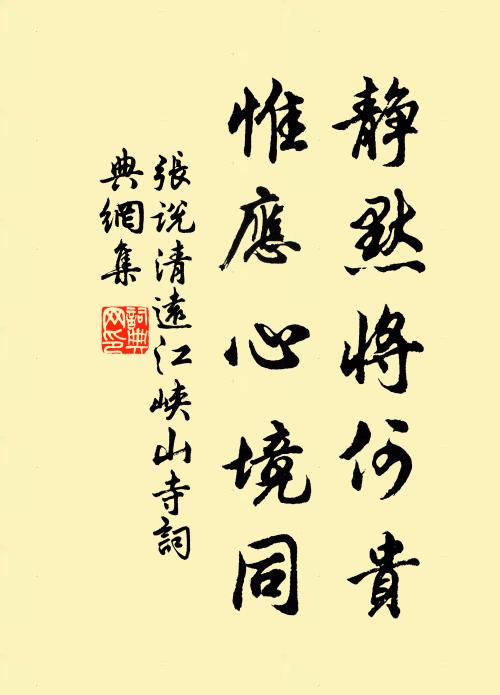 靜默將何貴
惟應心境同
張說清遠江峽山寺詞
典網集
詞典
网印